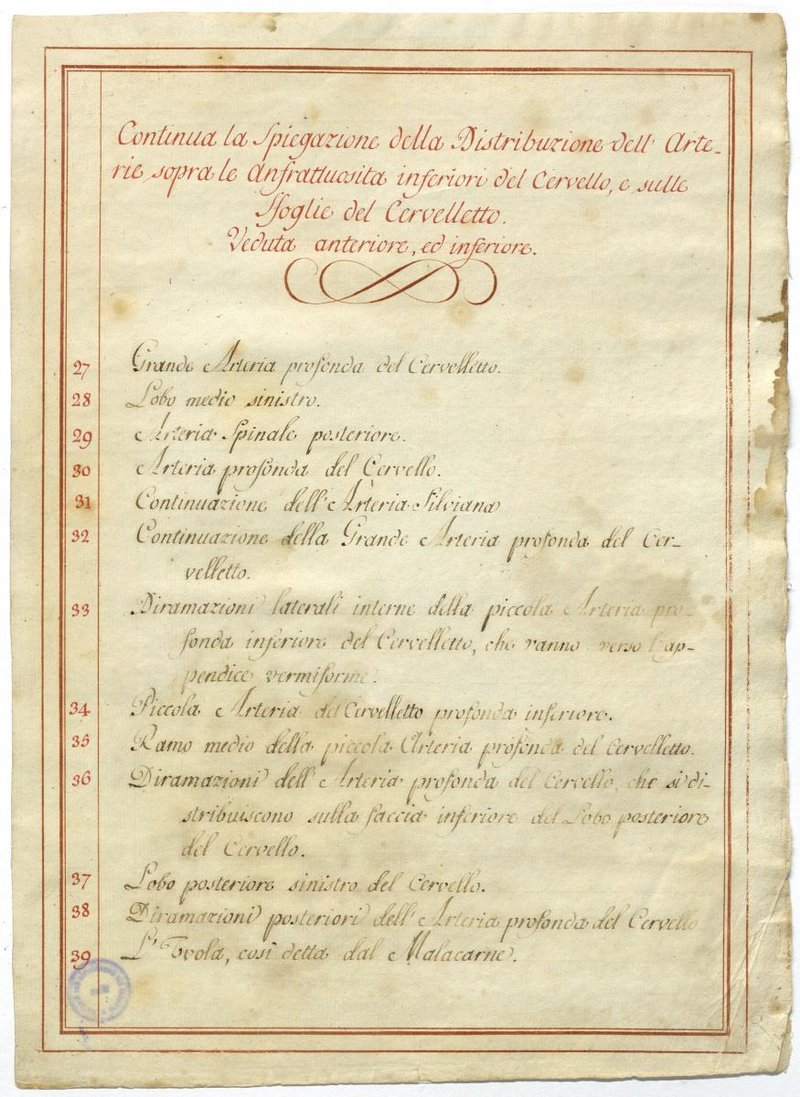 Continua la Spiegazione della Distribuzione dell' Arte-
rie sopra le Anfrattuosita inferiori del Cervello, e sulle
Ffoglie del Cervelletto.
Veduta anteriore, ed inferiore.
27 Grande Arteria profonda del Cervelletto.
28 Lobo medio sinistro.
29 Arteria Spinale posteriore.
30 Arteria profonda del Cervello.
31 Continuazione dell' Arteria Silviana
32 Continuazione della Grande Arteria profonda del Cer-
velletto.
33 Diramazioni laterali interne della piccola Arteria pro-
fonda inferiore del Cervelletto, che vanno verso l'ap-
pendice vermiforme.
34 Piccola Arteria del Cervelletto profonda inferiore.
35 Ramo medio della piccola Arteria profonda del Cervelletto.
36 Diramazioni dell' Arteria profonda del Cervello, che si di-
stribuiscono sulla faccia inferiore del Lobo posteriore
del Cervello.
37 Lobo posteriore sinistro del Cervello.
38 Diramazioni posteriori dell' Arteria profonda del Cervello
39 L' , così detta dal Malacarne.